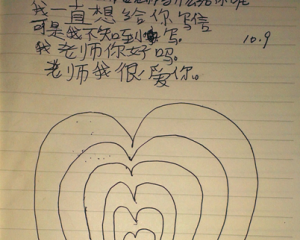 我一直想给你写信
可是我不知到写,
10.9
我老师你好吗。
老师我很爱你。